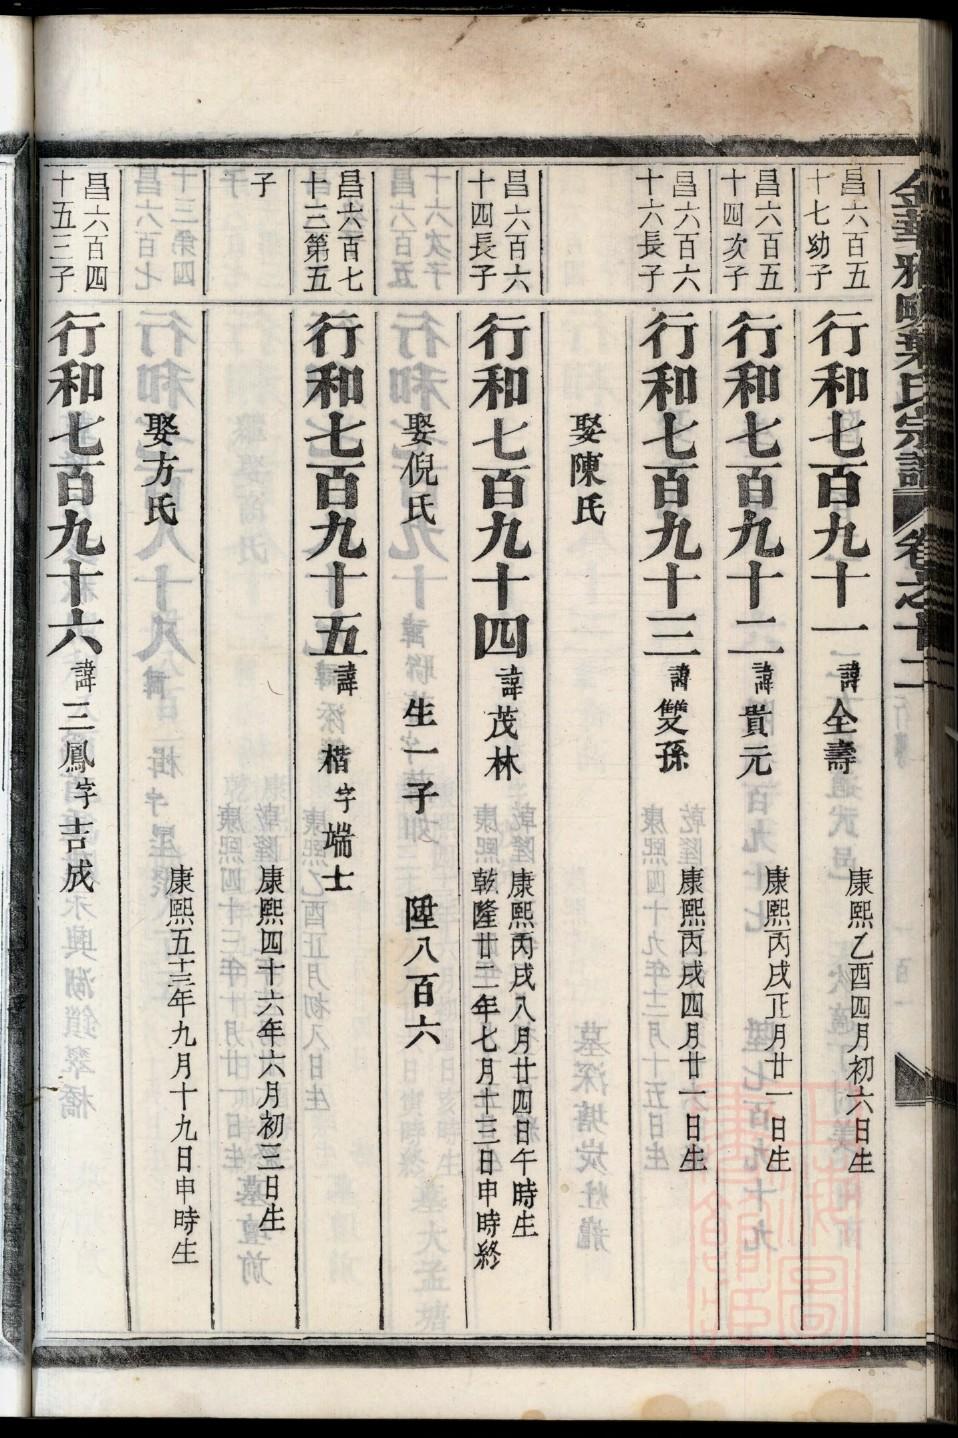 金華雅畈葉氏宗譜 卷之廿二
昌六百五
十七幼子
行和七百九十一 諱全壽
康熙乙酉四月初六日生
昌六百五
十四次子
行和七百九十二 諱貴元
康熙丙戌正月廿一日生
昌六百六
十六長子
行和七百九十三 諱雙孫
康熙丙戌四月廿一日生
娶陳氏
昌六百六
十四長子
行和七百九十四 諱茂林
康熙丙戌八月廿四日午時生
乾隆廿二年七月十三日申時終
娶倪氏 生一子 陞八百六
昌六百七
十三第五
子
行和七百九十五 諱楷字端士
康熙四十六年六月初三日生
娶方氏
康熙五十三年九月十九日申時生
昌六百四
十五三子
行和七百九十六 諱三鳳字吉成